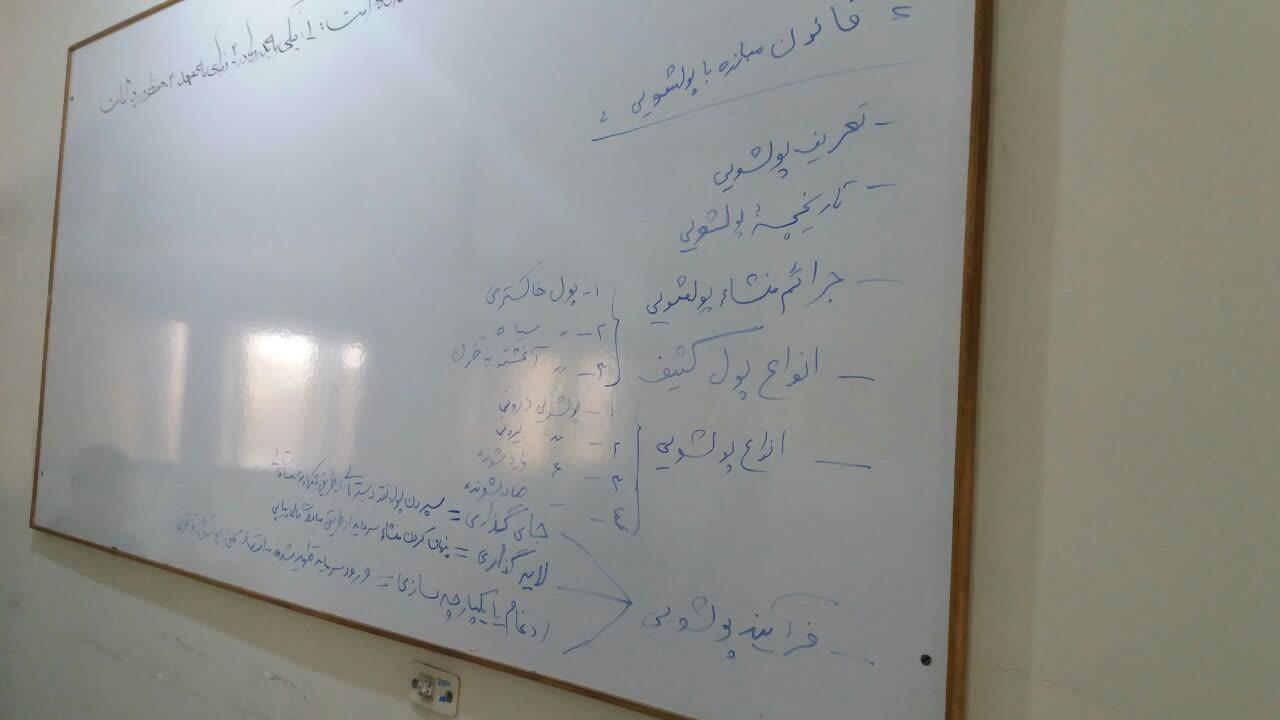 قانون مبارزه با پولشویی :
- تعریف پولشویی
- تاریخچهٔ پولشویی
- جرائم منشاء پولشویی
- انواع پول کثیف
۱- پول خاکستری
۲- " سیاه
۳- " آغشته به خون
- انواع پولشویی
۱- پولشویی درونی
۲- " بیرونی
۳- " وارد شونده
۴- صادر شونده
- فرآیند پولشویی
جای گذاری = سپردن پول نقد
لایه گذاری = پنهان کردن منشاء سرمایه از طریق
ادغام یا یکپارچه سازی = ورود سرمایه تطهیر شده به اقتصاد